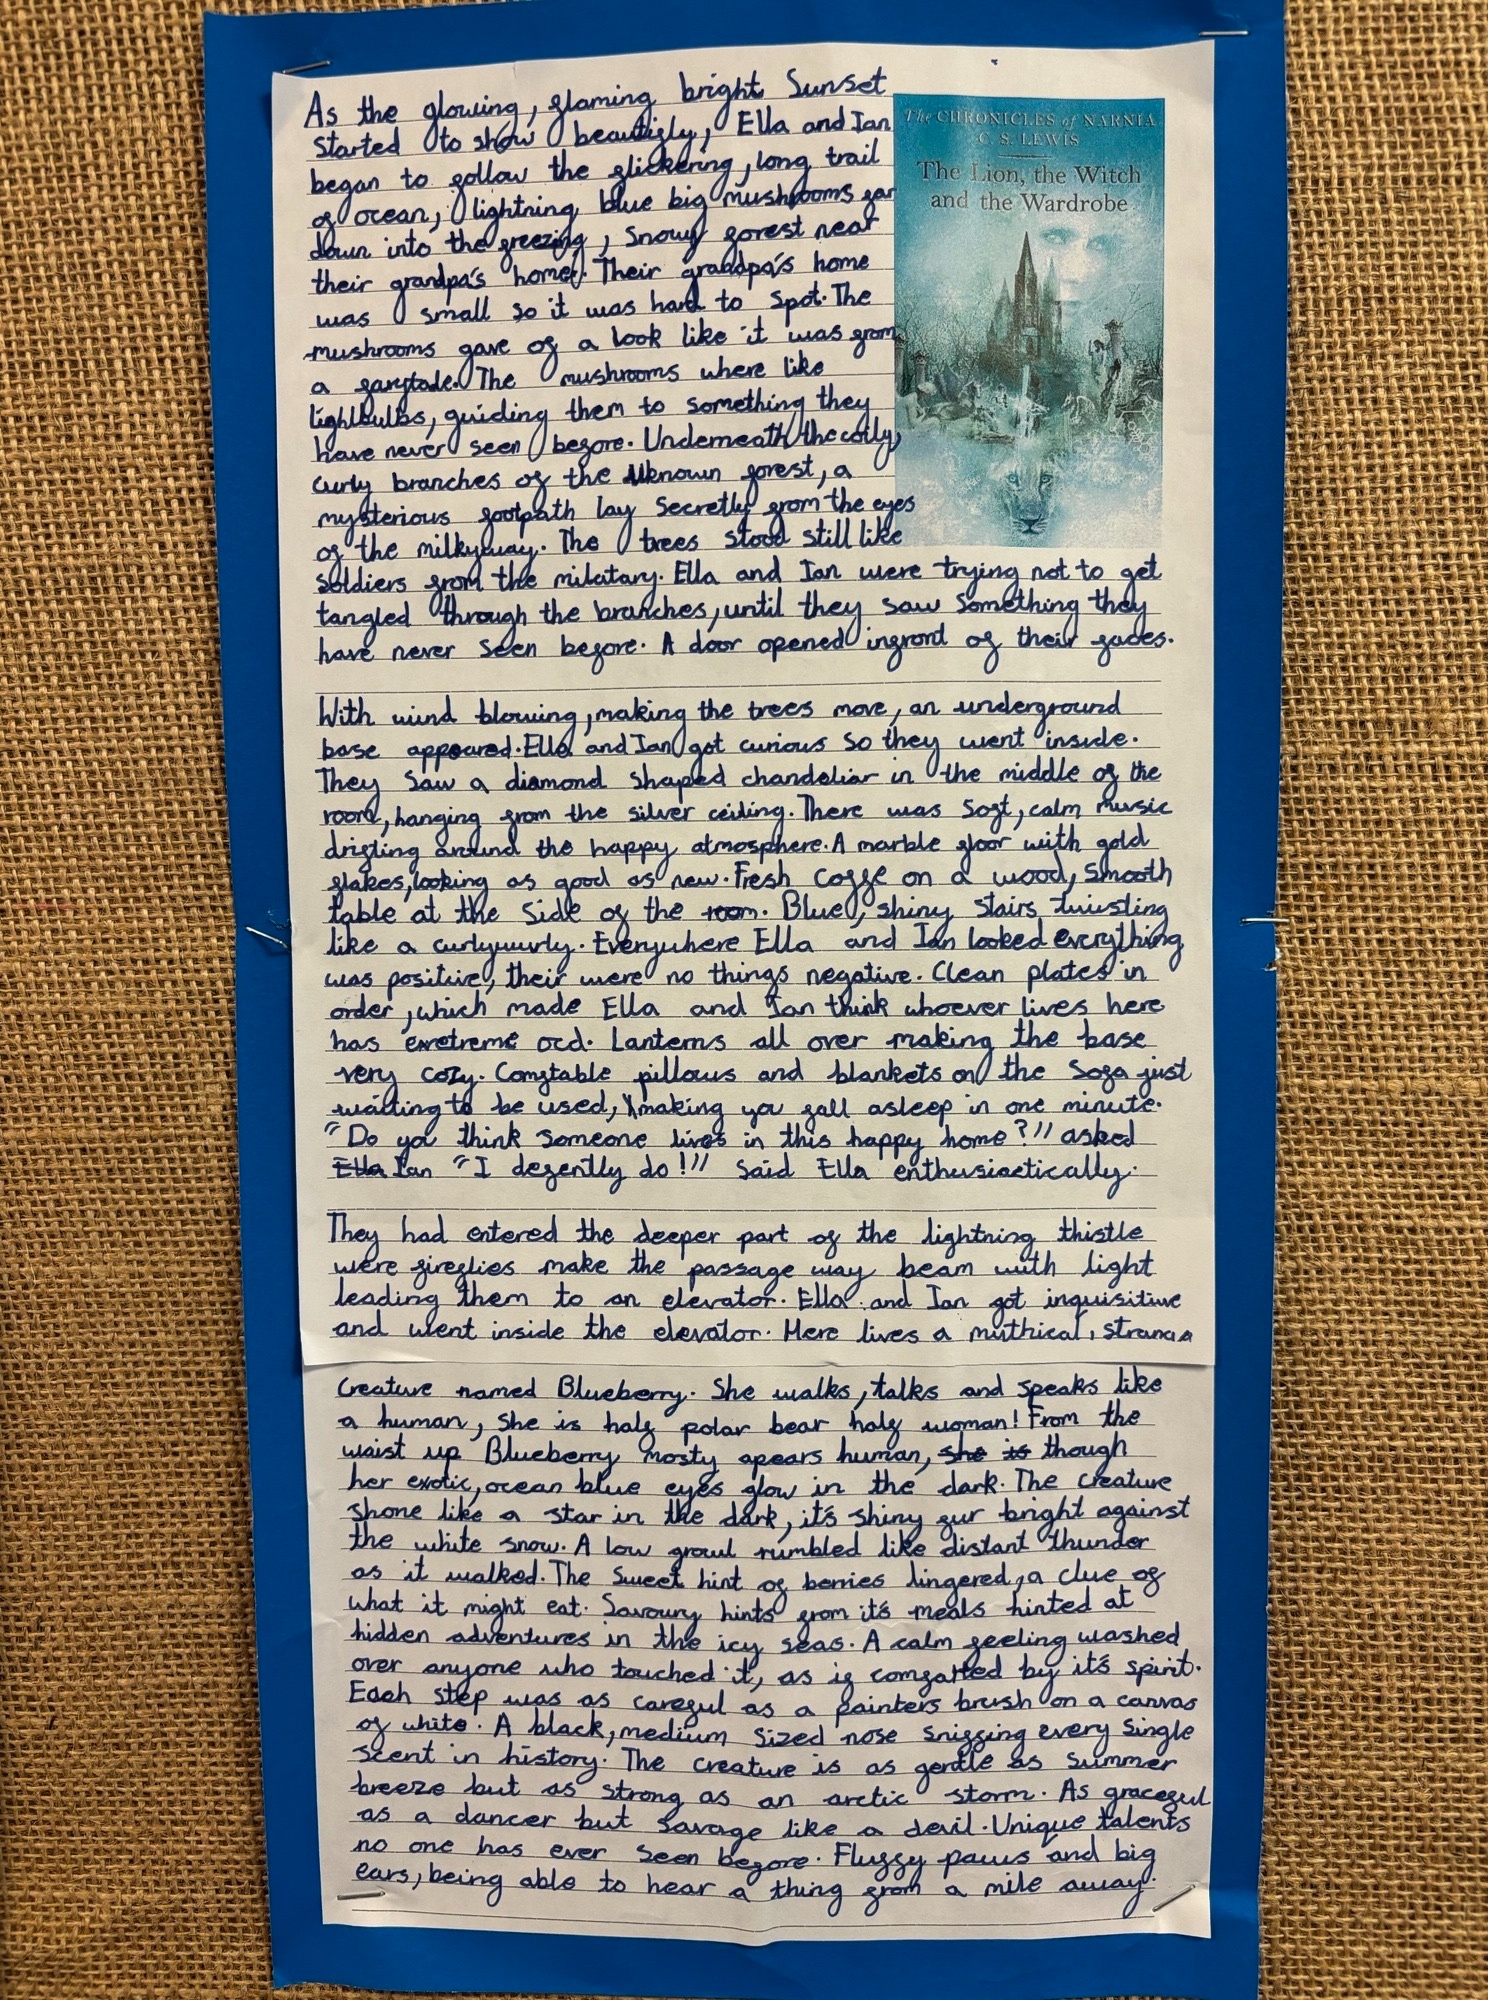 As the glowing, flaming bright Sunset
started to show beautifly, Ella and Ian
began to follow the flickering, long trail
of ocean, lightning blue big mushrooms far
down into the freezing, snowy forest near
their grandpa's home. Their grandpa's home
was small so it was hard to spot. The
mushrooms gave of a look like it was from
a farytale. The mushrooms where like
lightbulbs, guiding them to something they
have never seen before. Underneath the
curly branches of the uknown forest, a
mysterious footpath lay secretly from the eyes
of the milkyway. The trees stood still like
soldiers from the milatary. Ella and Ian were trying not to get
tangled through the branches, until they saw something they
have never seen before. A door opened infront of their faces.
With wind blowing, making the trees move, an underground
base appeared. Ella and Ian got curious so they went inside.
They saw a diamond shaped chandeliar in the middle of the
room, hanging from the silver ceiling. There was soft, calm music
drifting around the happy atmosphere. A marble floor with gold
flakes, looking as good as new. Fresh coffe on a wood, smooth
table at the side of the room. Blue, shiny stairs twisting
like a curlywurly. Everywhere Ella and Ian looked everything
was positive, their were no things negative. Clean plates in
order, which made Ella and Ian think whoever lives here
has exetreme ocd. Lanterns all over making the base
very cozy. Comftable pillows and blankets on the sofa just
waiting to be used, making you fall asleep in one minute.
"Do you think someone lives in this happy home?" asked
Ella Ian "I defently do!" said Ella enthusiastically.
They had entered the deeper part of the lightning thistle
were fireflies make the passage way beam with light
leading them to an elevator. Ella and Ian got inquisitive
and went inside the elevator. Here lives a mythical, strange
creature named Blueberry. She walks, talks and speaks like
a human, she is half polar bear half woman! From the
waist up Blueberry mosty apears human, she is though
her exotic, ocean blue eyes glow in the dark. The creature
shone like a star in the dark, it's shiny fur bright against
the white snow. A low growl rumbled like distant thunder
as it walked. The sweet hint of berries lingered, a clue of
what it might eat. Savoury hints from it's meals hinted at
hidden adventures in the icy seas. A calm feeling washed
over anyone who touched it, as if comfatted by it's spirit.
Each step was as careful as a painters brush on a canvas
of white. A black, medium sized nose sniffing every single
scent in history. The creature is as gentle as summer
breeze but as strong as an arctic storm. As graceful
as a dancer but savage like a devil. Unique talents
no one has ever seen before. Fluffy paws and big
ears, being able to hear a thing from a mile away.
The CHRONICLES of NARNIA
C. S. LEWIS
The Lion, the Witch
and the Wardrobe